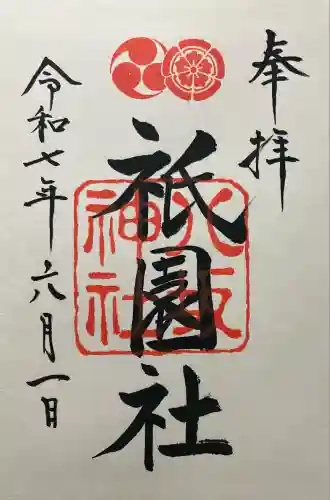 奉拝
祇園社
八坂
神社
令和七年六月一日